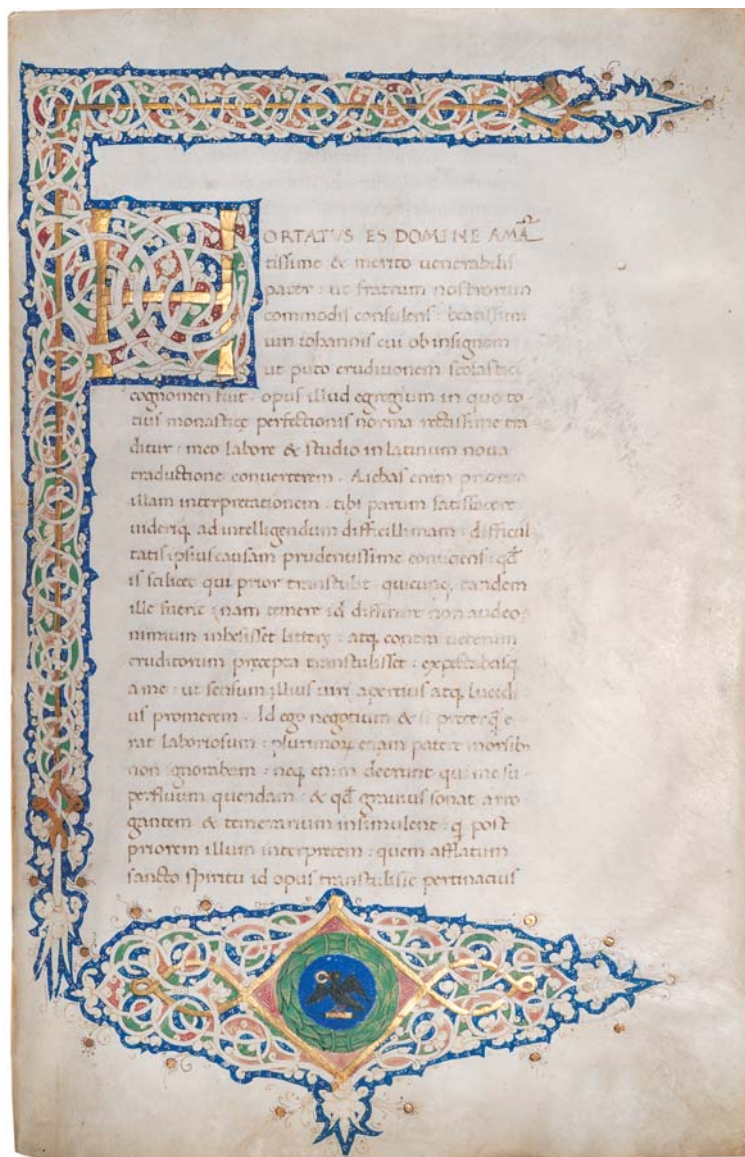 HORTATVS ES DOMINE AMA̅
tissime & merito uenerabilis
pater : ut fratrum nostrorum
commodis consulens : beatissimi
uiri Iohannis cui ob insignem
ut puto eruditionem scolastici
cognomen fuit : opus illud egregium in quo to
tius monasticę perfectionis norma rectissime tra
ditur : meo labore & studio in latinum noua
traductione conuerterem . Aiebas enim priorem
illam interpretationem tibi parum satisfacere
uideriq, ad intelligendum difficillimam : difficul
tatis ipsius causam prudentissime coniiciens : qđ
is scilicet qui prior transtulit quicunq, tandem
ille fuerit : nam temere id diffinire non audeo
nimium inhesisset litterę : atq, contra ueterum
eruditorum pręcepta transtulisset : expetebasq,
a me : ut sensum illius uiri apertius atq, lucidi
us promerem . Id ego negotium & si e
rat laboriosum : plurimorꝝ etiam patere morsib,
non ignorabam : neq, enim deerunt qui me su
perfluum quendam : & qđ grauius sonat arro
gantem & temerarium insimulent : q̨ post
priorem illum interpretem : quem afflatum
sancto spiritu id opus transtulisse pertinacius